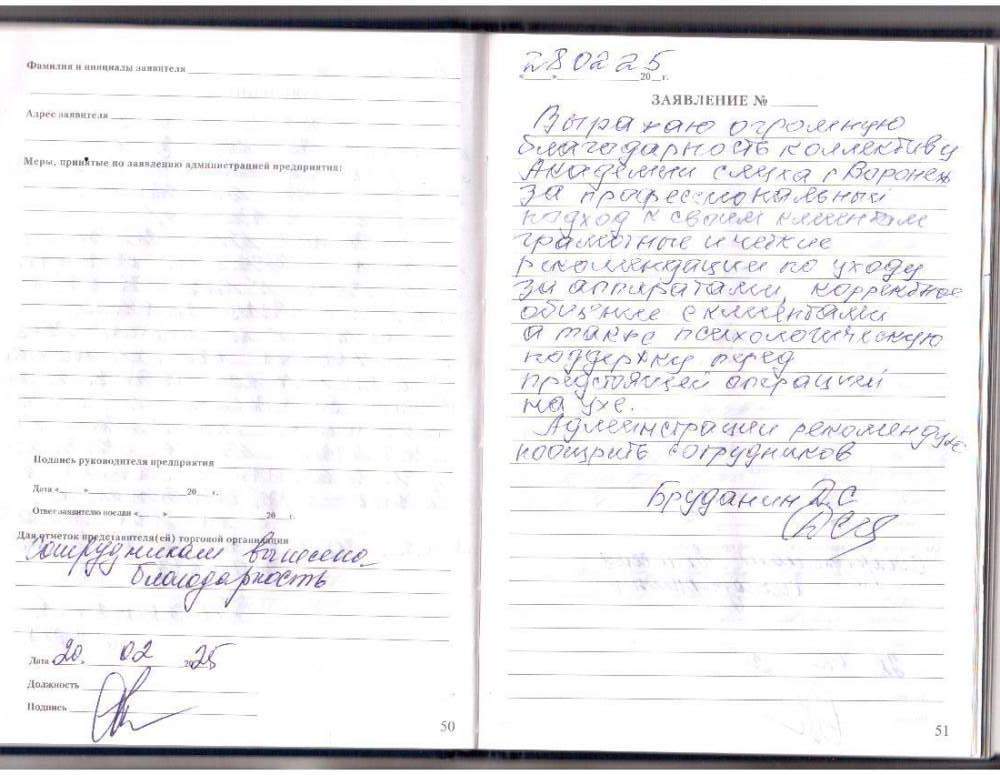 Фамилия и инициалы заявителя
Адрес заявителя
Меры, принятые по заявлению администрацией предприятия:
Подпись руководителя предприятия
Дата «__» 20__ г.
Ответ заявителю послан «__» 20__ г.
Для отметок представителя(ей) торговой организации
Сотрудникам вынесена
благодарность
Дата 20. 02 2025
Должность
Подпись
50
28 02 25
«__» 20__ г.
ЗАЯВЛЕНИЕ №
Выражаю огромную
благодарность коллективу
Академии слуха г Воронеж
за профессиональный
подход к своим клиентам
грамотные и четкие
рекомендации по уходу
за аппаратами, корректное
общение с клиентами
а также психологическую
поддержку перед
предстоящей операцией
на ухе.
Администрации рекомендую
поощрить сотрудников
Бруданин Д.С
51